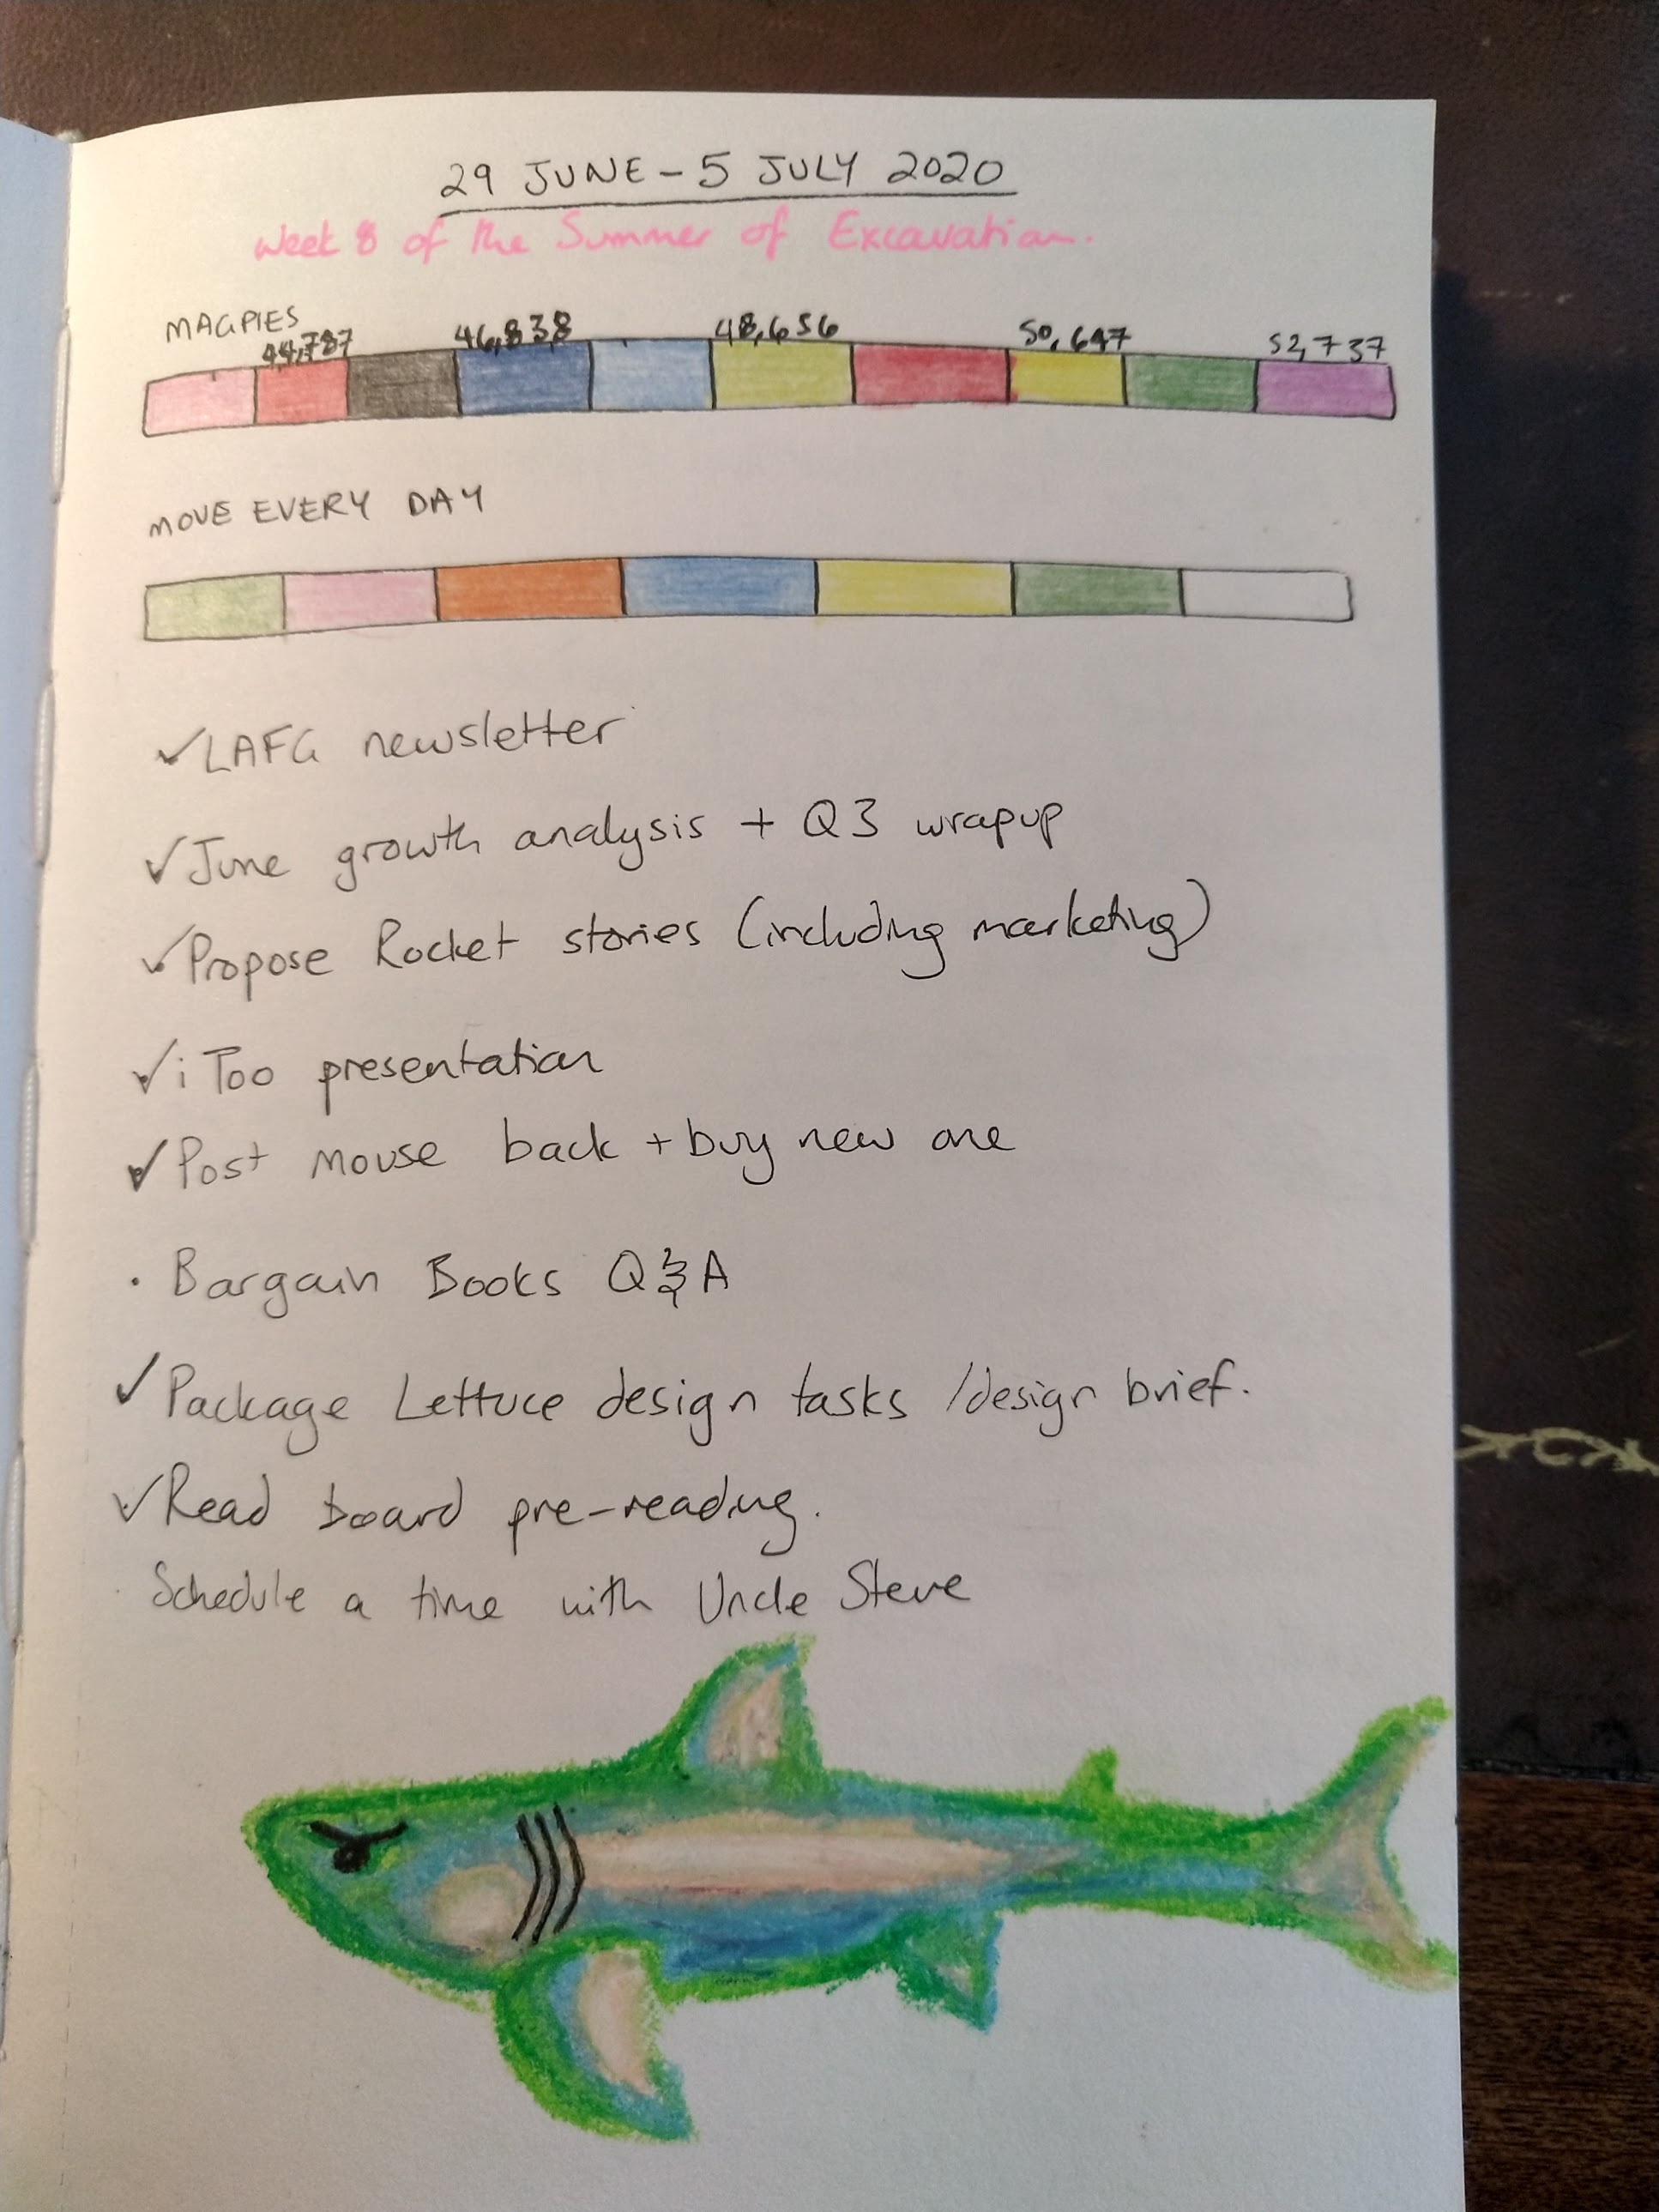 29 JUNE - 5 JULY 2020
Week 8 of the Summer of Excavation.
MAGPIES
44,787 46,838 48,656 50,647 52,737
MOVE EVERY DAY
✓ LAFG newsletter
✓ June growth analysis + Q3 wrapup
✓ Propose Rocket stories (including marketing)
✓ i Too presentation
✓ Post mouse back + buy new one
· Bargain Books Q & A
✓ Package Lettuce design tasks / design brief.
✓ Read board pre-reading.
· Schedule a time with Uncle Steve